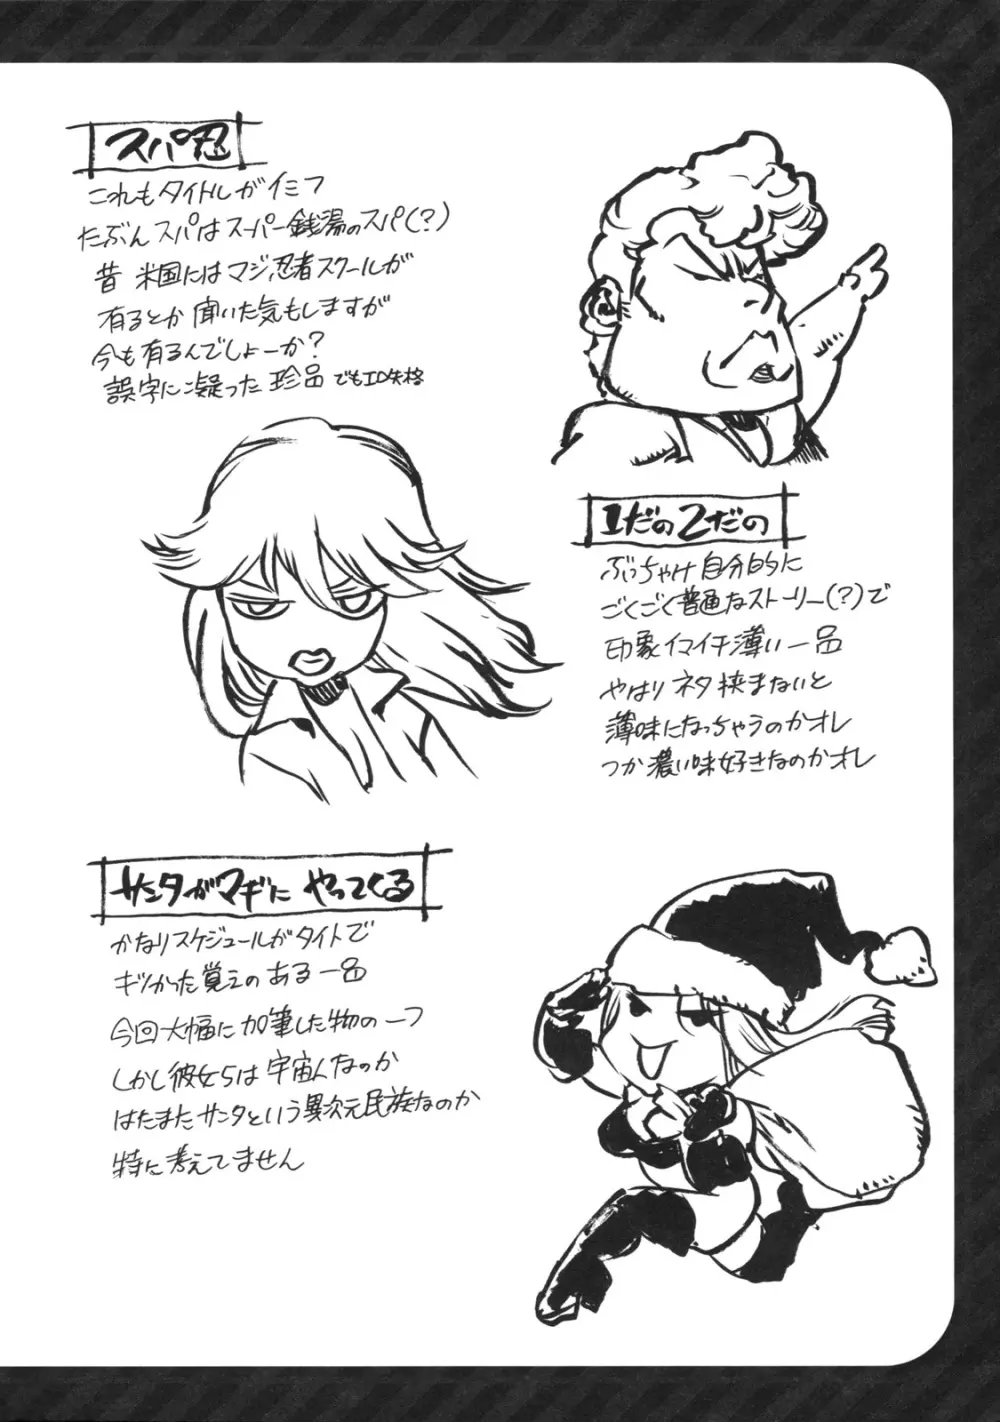 スパ忍
これもタイトルがイミフ
たぶんスパはスーパー銭湯のスパ(?)
昔 米国にはマジ忍者スクールが
有るとか 聞いた気もしますが
今も有るんでしょーか?
誤字に凝った 珍品 でもエロ失格
1だの2だの
ぶっちゃけ 自分的に
ごくごく普通なストーリー(?)で
印象イマイチ薄い一品
やはり ネタ 挟まないと
薄味になっちゃうのかオレ
つか 濃い味好きなのかオレ
サンタがマギに やってくる
かなりスケジュールがタイトで
ギツかった覚えのある一品
今回大幅に加筆した物の一つ
しかし彼女らは 宇宙人なのか
はたまた サンタという異次元民族なのか
特に考えてません